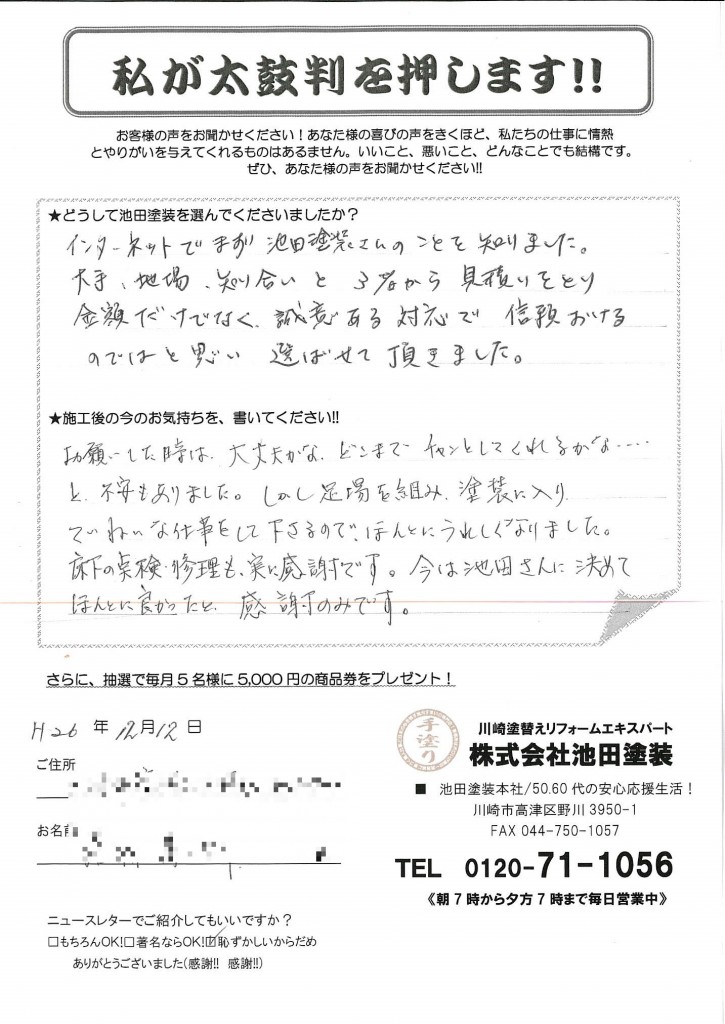 私が太鼓判を押します!!
お客様の声をお聞かせください！あなた様の喜びの声をきくほど、私たちの仕事に情熱
とやりがいを与えてくれるものはあるません。いいこと、悪いこと、どんなことでも結構です。
ぜひ、あなた様の声をお聞かせください!!
★どうして池田塗装を選んでくださいましたか？
インターネットでまず池田塗装さんのことを知りました。
大手、地場、知り合いと3者から見積りをとり
金額だけでなく、誠意ある対応で信頼おける
のではと思い選ばせて頂きました。
★施工後の今のお気持ちを、書いてください!!
お願いした時は、大丈夫かな、どこまでチャンとしてくれるかな……
と、不安もありました。しかし足場を組み、塗装に入り、
ていねいな仕事をして下さるので、ほんとにうれしくなりました。
床下の点検・修理も、実に感謝です。今は池田さんに決めて
ほんとに良かったと、感謝のみです。
さらに、抽選で毎月5名様に5,000円の商品券をプレゼント！
H26年12月12日
ご住所
お名前
手塗り
川崎塗替えリフォームエキスパート
株式会社池田塗装
■ 池田塗装本社/50.60代の安心応援生活！
川崎市高津区野川3950-1
FAX 044-750-1057
TEL 0120-71-1056
《朝7時から夕方7時まで毎日営業中》
ニュースレターでご紹介してもいいですか？
□もちろんOK!□著名ならOK!☑恥ずかしいからだめ
ありがとうございました(感謝!! 感謝!!)